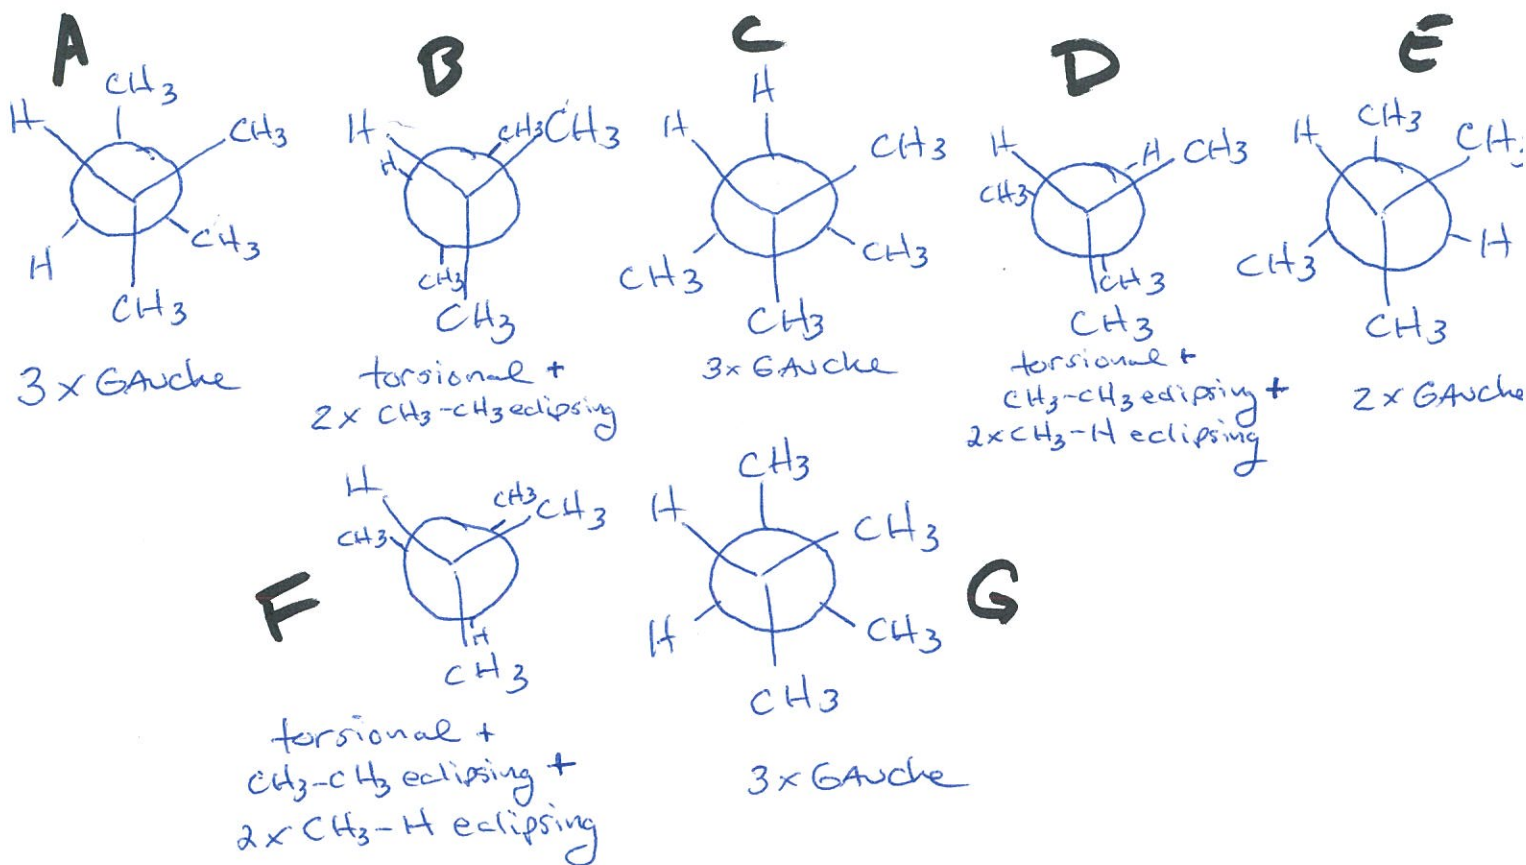 A
CH3
H
CH3
H
CH3
CH3
3 x GAuche
B
H
CH3
CH3
H
CH3
CH3
torsional +
2x CH3-CH3 eclipsing
C
H
H
CH3
CH3
CH3
CH3
3x GAuche
D
H
H
CH3
CH3
CH3
CH3
torsional +
CH3-CH3 eclipsing +
2x CH3-H eclipsing
E
CH3
H
CH3
CH3
H
CH3
2x GAuche
F
H
CH3
CH3
CH3
H
CH3
torsional +
CH3-CH3 eclipsing +
2x CH3-H eclipsing
G
CH3
H
CH3
H
CH3
CH3
3x GAuche